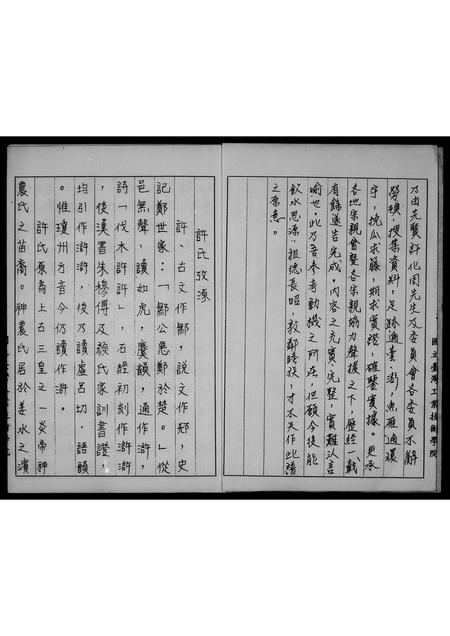 國立臺灣工業技術學院
乃由先賢許化周先生及委員會各委員不辭
勞頓，搜集資料，足跡遍臺、澎，魚雁通環
宇，挽瓜求藤，期求實證，確鑿實據。更承
各地宗親會暨各宗親協力聲援之下，歷經一載
有餘遂告完成。內容之充實、完整，實難以言
喻也。此乃吾參考動機之所在，但願今後能
飲水思源，祖德長昭，敦鄰睦族，才不失作此譜
之原意。
許氏攷源
許、古文作鄦，說文作鄦，史
記鄭世家：「鄦公惡鄭於楚。」從
邑無聲，讀如虎，麌韻，通作滸，
詩「伐木許許」，石經初刻作滸滸
，後漢書朱穆傳及顏氏家訓書證，
均引作滸滸，後乃讀虛呂切，語韻
。惟瓊州方音今仍讀作滸。
許氏原爲上古三皇之一炎帝神
農氏之苗裔。神農氏居於姜水之濱